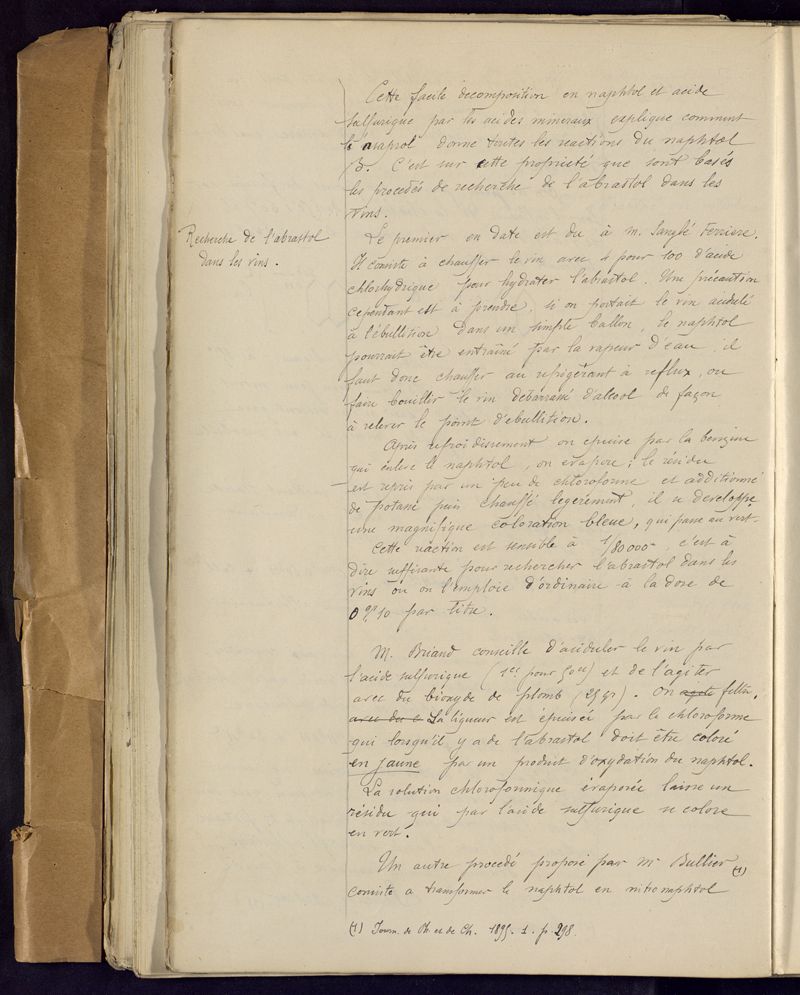 Cette facile decomposition en naphtol et acide
sulfurique par les acides mineraux explique comment
l'asaprol donne toutes les reactions du naphtol
β. C'est sur cette proprieté que sont basés
les procedés de recherche de l'abrastol dans les
vins.
Recherche de l'abrastol
dans les vins.
Le premier en date est du à M. Sanglé Ferriere.
Il consiste à chauffer le vin avec 4 pour 100 d'acide
chlorhydrique pour hydrater l'abrastol. Une précaution
cependant est à prendre, si on portait le vin acidulé
à l'ébullition dans un simple ballon, le naphtol
pourrait être entraîné par la vapeur d'eau, il
faut donc chauffer au refrigérant à reflux, ou
faire bouillir le vin débarrassé d'alcool de façon
à relever le point d'ebullition.
Après refroidissement on epuise par la benzine
qui enleve le naphtol, on évapore; le résidu
est repris par un peu de chloroforme et additionné
de potasse puis chauffé legèrement, il se developpe
une magnifique coloration bleue, qui passe au vert.
Cette réaction est sensible à 1/80000, c'est à
dire suffisante pour rechercher l'abrastol dans les
vins où on l'emploie d'ordinaire à la dose de
0 gr 10 par litre.
M. Briand conseille d'aciduler le vin par
l'acide sulfurique (1cc pour 50cc) et de l'agiter
avec du bioxyde de plomb (25 gr). On agite filtre,
avec du c La liqueur est épuisée par le chloroforme
qui lorsqu'il y a de l'abrastol doit être coloré
en jaune par un produit d'oxydation du naphtol.
La solution chloroformique évaporée laisse un
résidu qui par l'acide sulfurique se colore
en vert.
Un autre procedé proposé par Mr Bullier (1)
consiste a transformer le naphtol en nitronaphtol
(1) Journ. de Ph. et de Ch. 1895. 1. p. 298.